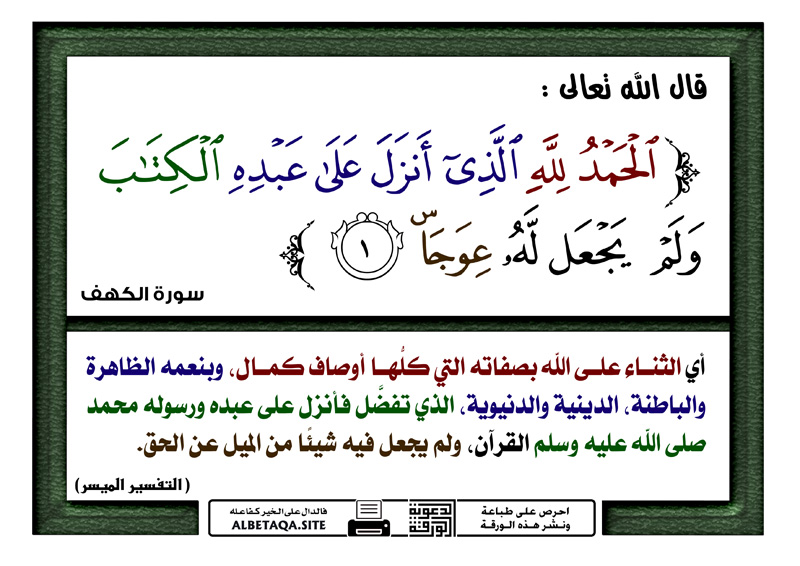 قال الله تعالى :
﴿ ٱلْحَمْدُ لِلَّهِ ٱلَّذِىٓ أَنزَلَ عَلَىٰ عَبْدِهِ ٱلْكِتَـٰبَ
وَلَمْ يَجْعَل لَّهُۥ عِوَجَاۜ ١ ﴾
سورة الكهف
أي الثنـاء علـى الله بصفاته التي كلُّهـا أوصاف كمـال، وبنعمه الظاهرة
والباطنة، الدينية والدنيوية، الذي تفضَّل فأنزل على عبده ورسوله محمد
صلى الله عليه وسلم القرآن، ولم يجعل فيه شيئًا من الميل عن الحق.
( التفسير الميسر )
احرص على طباعة
ونشر هذه الورقة
الورقة
الدعوية
فالدال على الخير كفاعله
ALBETAQA.SITE